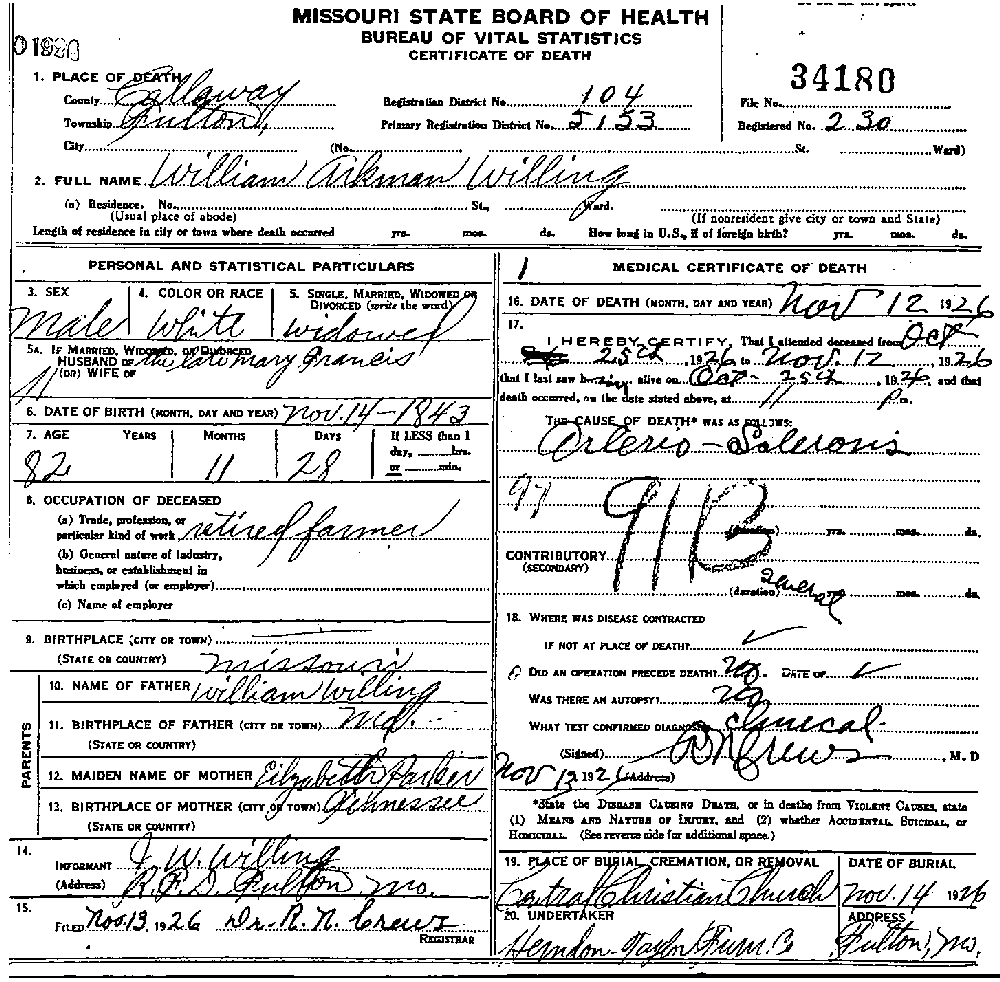 MISSOURI STATE BOARD OF HEALTH
BUREAU OF VITAL STATISTICS
CERTIFICATE OF DEATH
1. PLACE OF DEATH
County Callaway
Township Fulton,
City (No. St. Ward)
Registration District No. 104
Primary Registration District No. 5153
34180
File No.
Registered No. 230
2. FULL NAME William Arkman Willing
(a) Residence, No. St., Ward.
(Usual place of abode) (If nonresident give city or town and State)
Length of residence in city or town where death occurred yrs. mos. ds. How long in U.S., if of foreign birth? yrs. mos. ds.
PERSONAL AND STATISTICAL PARTICULARS
3. SEX Male
4. COLOR OR RACE White
5. SINGLE, MARRIED, WIDOWED OR DIVORCED (write the word) widowed
5A. IF MARRIED, WIDOWED, OR DIVORCED
HUSBAND OF the late Mary Francis
(OR) WIFE OF
6. DATE OF BIRTH (MONTH, DAY AND YEAR) Nov. 14 - 1843
7. AGE YEARS MONTHS DAYS If LESS than 1 day, hrs. or min.
82 11 28
8. OCCUPATION OF DECEASED
(a) Trade, profession, or
particular kind of work retired farmer
(b) General nature of industry,
business, or establishment in
which employed (or employer)
(c) Name of employer
9. BIRTHPLACE (CITY OR TOWN)
(STATE OR COUNTRY) Missouri
PARENTS
10. NAME OF FATHER William Willing
11. BIRTHPLACE OF FATHER (CITY OR TOWN) Md.
(STATE OR COUNTRY)
12. MAIDEN NAME OF MOTHER Elizabeth Parker
13. BIRTHPLACE OF MOTHER (CITY OR TOWN) Tennessee
(STATE OR COUNTRY)
14.
INFORMANT J. W. Willing
(Address) R.F.D. Fulton, Mo.
15.
FILED Nov. 13, 1926 Dr. R. N. Crews
REGISTRAR
MEDICAL CERTIFICATE OF DEATH
16. DATE OF DEATH (MONTH, DAY AND YEAR) Nov 12 1926
17.
I HEREBY CERTIFY, That I attended deceased from Oct
25th, 1926 to Nov. 12, 1926
that I last saw him alive on Oct - 25th, 1926, and that
death occurred, on the date stated above, at 11 P m.
THE CAUSE OF DEATH* WAS AS FOLLOWS:
Arterio-Sclerosis
97 91B
(duration) yrs. mos. ds.
CONTRIBUTORY
(SECONDARY)
(duration) several mos. ds.
18. WHERE WAS DISEASE CONTRACTED
IF NOT AT PLACE OF DEATH?
DID AN OPERATION PRECEDE DEATH? no. DATE OF
WAS THERE AN AUTOPSY? no
WHAT TEST CONFIRMED DIAGNOSIS? clinical
(Signed) R N Crews, M. D
Nov 13 1926 (Address)
*State the DISEASE CAUSING DEATH, or in deaths from VIOLENT CAUSES, state
(1) MEANS AND NATURE OF INJURY, and (2) whether ACCIDENTAL, SUICIDAL, or
HOMICIDAL. (See reverse side for additional space.)
19. PLACE OF BURIAL, CREMATION, OR REMOVAL DATE OF BURIAL
Central Christian Church Nov. 14 1926
20. UNDERTAKER ADDRESS
Herndon-Taylor Furn. Co Fulton, Mo.